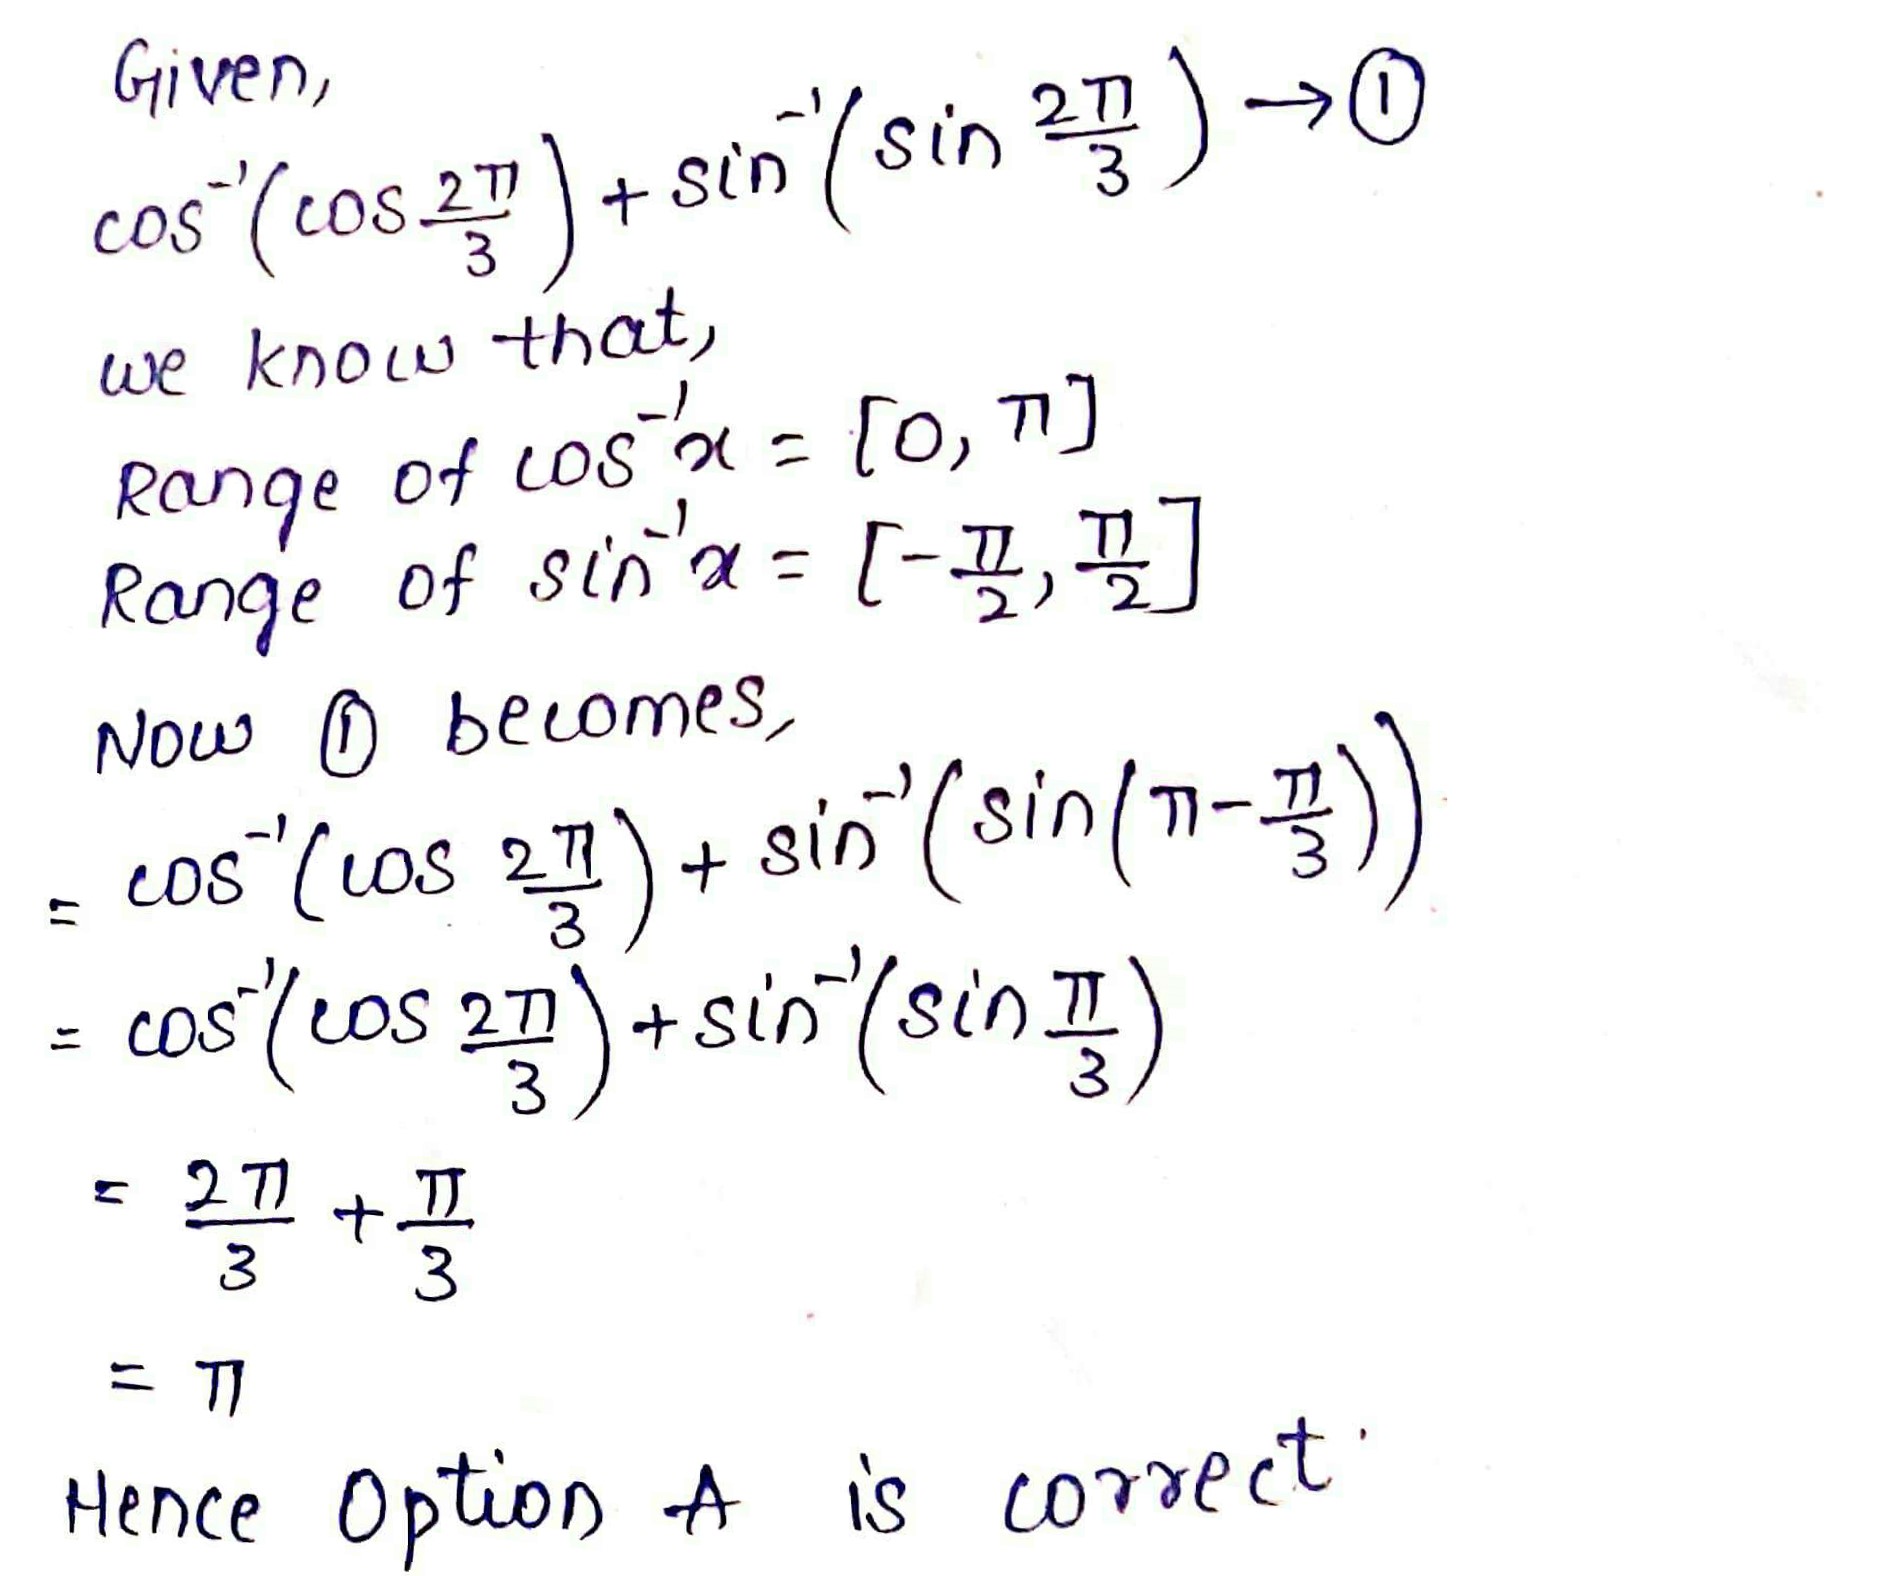 Given,
cos⁻¹(cos 2π/3) + sin⁻¹(sin 2π/3) → ①
we know that,
Range of cos⁻¹x = [0, π]
Range of sin⁻¹x = [-π/2, π/2]
Now ① becomes,
= cos⁻¹(cos 2π/3) + sin⁻¹(sin(π-π/3))
= cos⁻¹(cos 2π/3) + sin⁻¹(sin π/3)
= 2π/3 + π/3
= π
Hence Option A is correct.